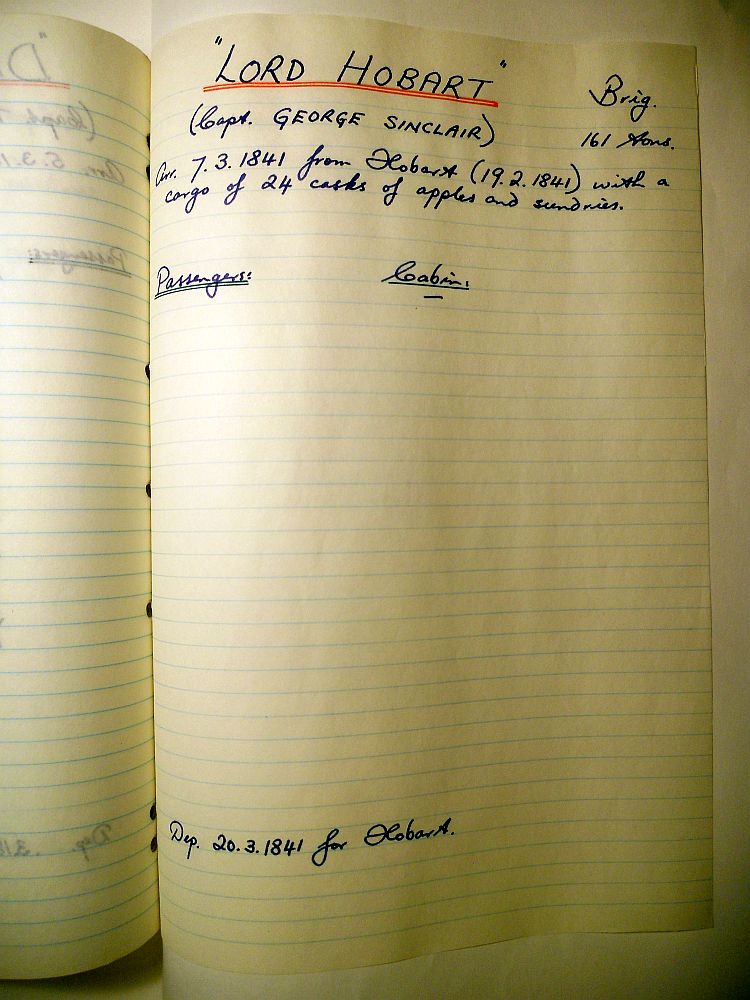 "LORD HOBART"
Brig.
(Capt. GEORGE SINCLAIR)
161 tons.
Arr. 7.3.1841 from Hobart (19.2.1841) with a
cargo of 24 casks of apples and sundries.
Passengers:
Cabin:
—
Dep. 20.3.1841 for Hobart.
"D
(Capt.
Arr. 5.3.1
Passengers:
Dep.